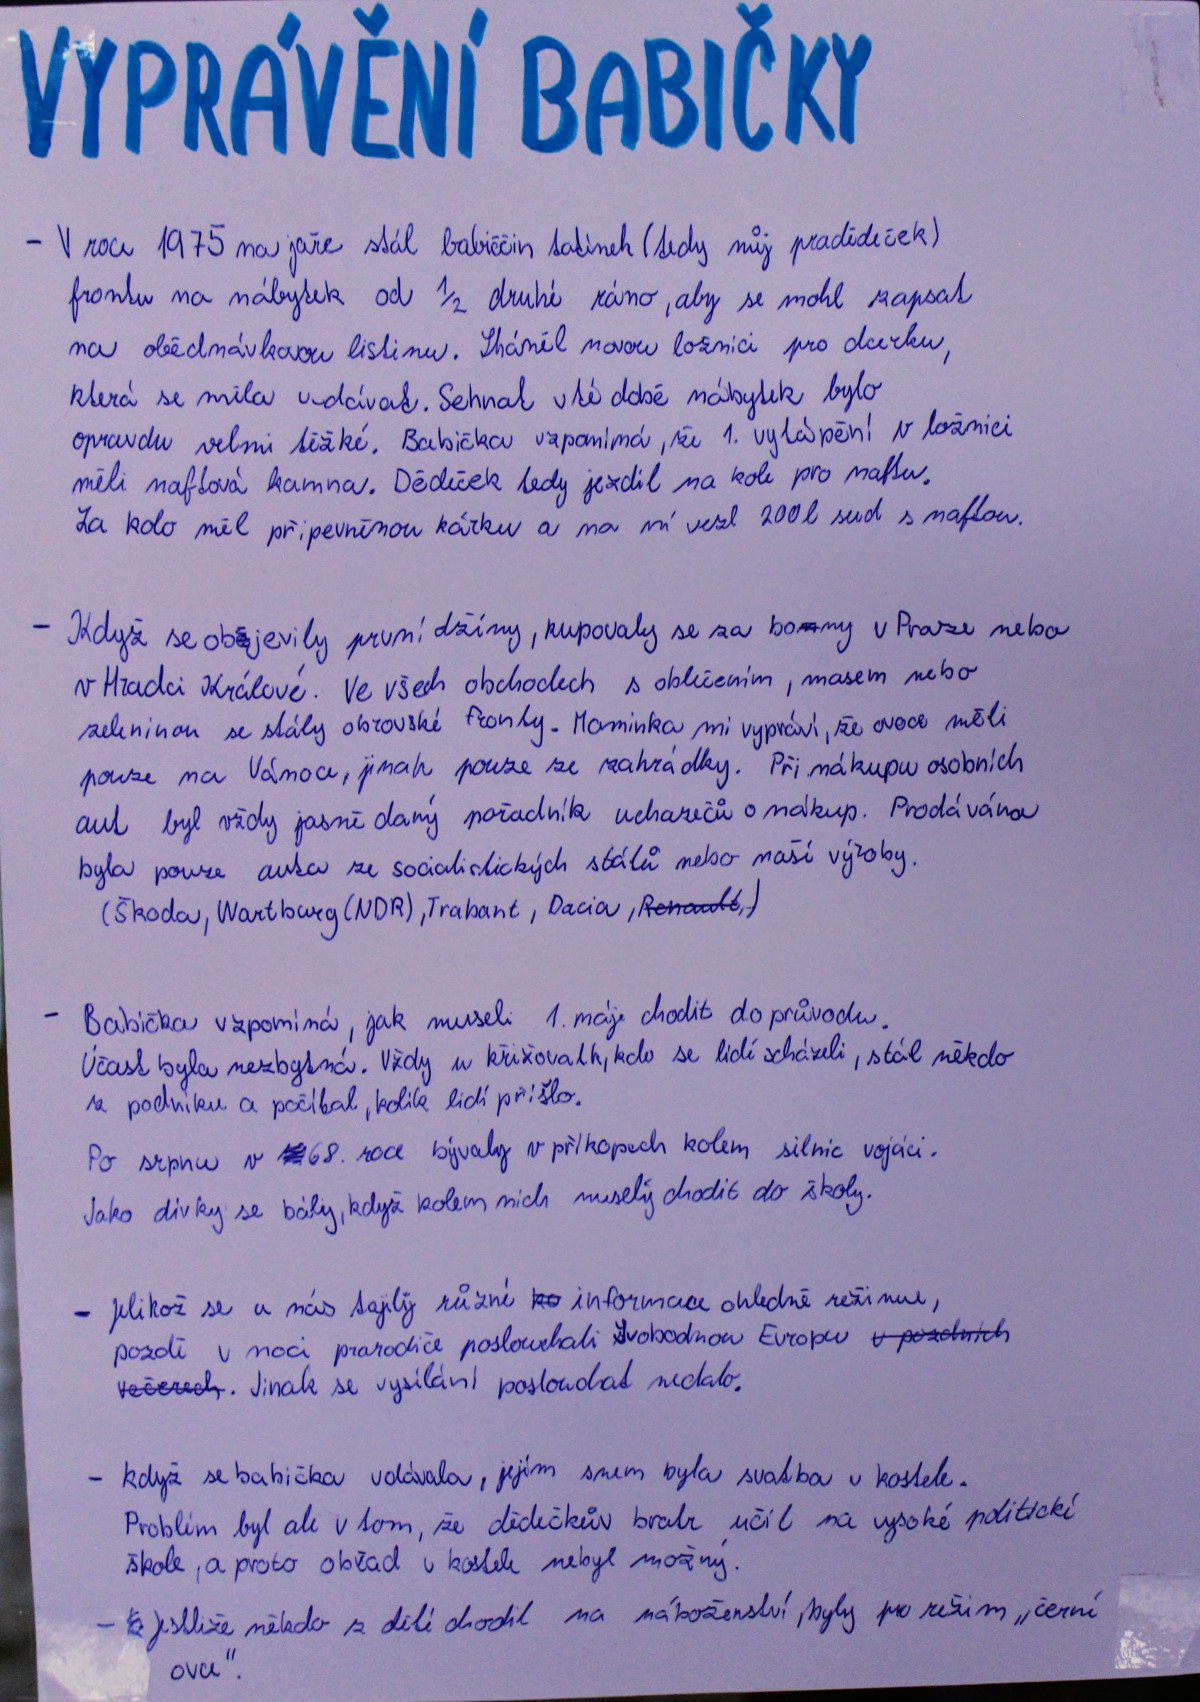 VYPRÁVĚNÍ BABIČKY
- V roce 1975 na jaře stál babiččin tatínek (tedy můj pradědeček)
frontu na nábytek od 1/2 druhé ráno, aby se mohl zapsat
na obědnávkovou listinu. Sháněl novou ložnici pro dcerku,
která se měla vdávat. Sehnat v té době nábytek bylo
opravdu velmi těžké. Babička vzpomíná, že 1. vytápění v ložnici
měli naftová kamna. Dědeček tedy jezdil na kole pro naftu.
Za kolo měl připevněnou kárku a na ní vezl 200l sud s naftou.
- Když se objevily první džíny, kupovaly se za bony v Praze nebo
v Hradci Králové. Ve všech obchodech s oblečením, masem nebo
zeleninou se stály obrovské fronty. Maminka mi vypráví, že ovoce měli
pouze na Vánoce, jinak pouze ze zahrádky. Při nákupu osobních
aut byl vždy jasně daný pořadník uchazečů o nákup. Prodávána
byla pouze auta ze socialistických států nebo naší výroby.
(Škoda, Wartburg (NDR), Trabant, Dacia, Renault,)
- Babička vzpomíná, jak museli 1. máje chodit do průvodu.
Účast byla nezbytná. Vždy u křižovatk, kde se lidí scházeli, stál někdo
z podniku a počítal, kolik lidí přišlo.
Po srpnu v 68. roce bývaly v příkopech kolem silnic vojáci.
Jako dívky se bály, když kolem nich musely chodit do školy.
- Jelikož se u nás tajily různé ko informace ohledně režimu,
pozdě v noci prarodiče poslouchali Svobodnou Evropu v pozdních
večerech. Jinak se vysílání poslouchat nedalo.
- Když se babička vdávala, jejím snem byla svatba v kostele.
Problém byl ale v tom, že dědečkův bratr učil na vysoké politické
škole, a proto obřad v kostele nebyl možný.
- Jestliže někdo z dětí chodil na náboženství, byly pro režim „černé
ovce“.